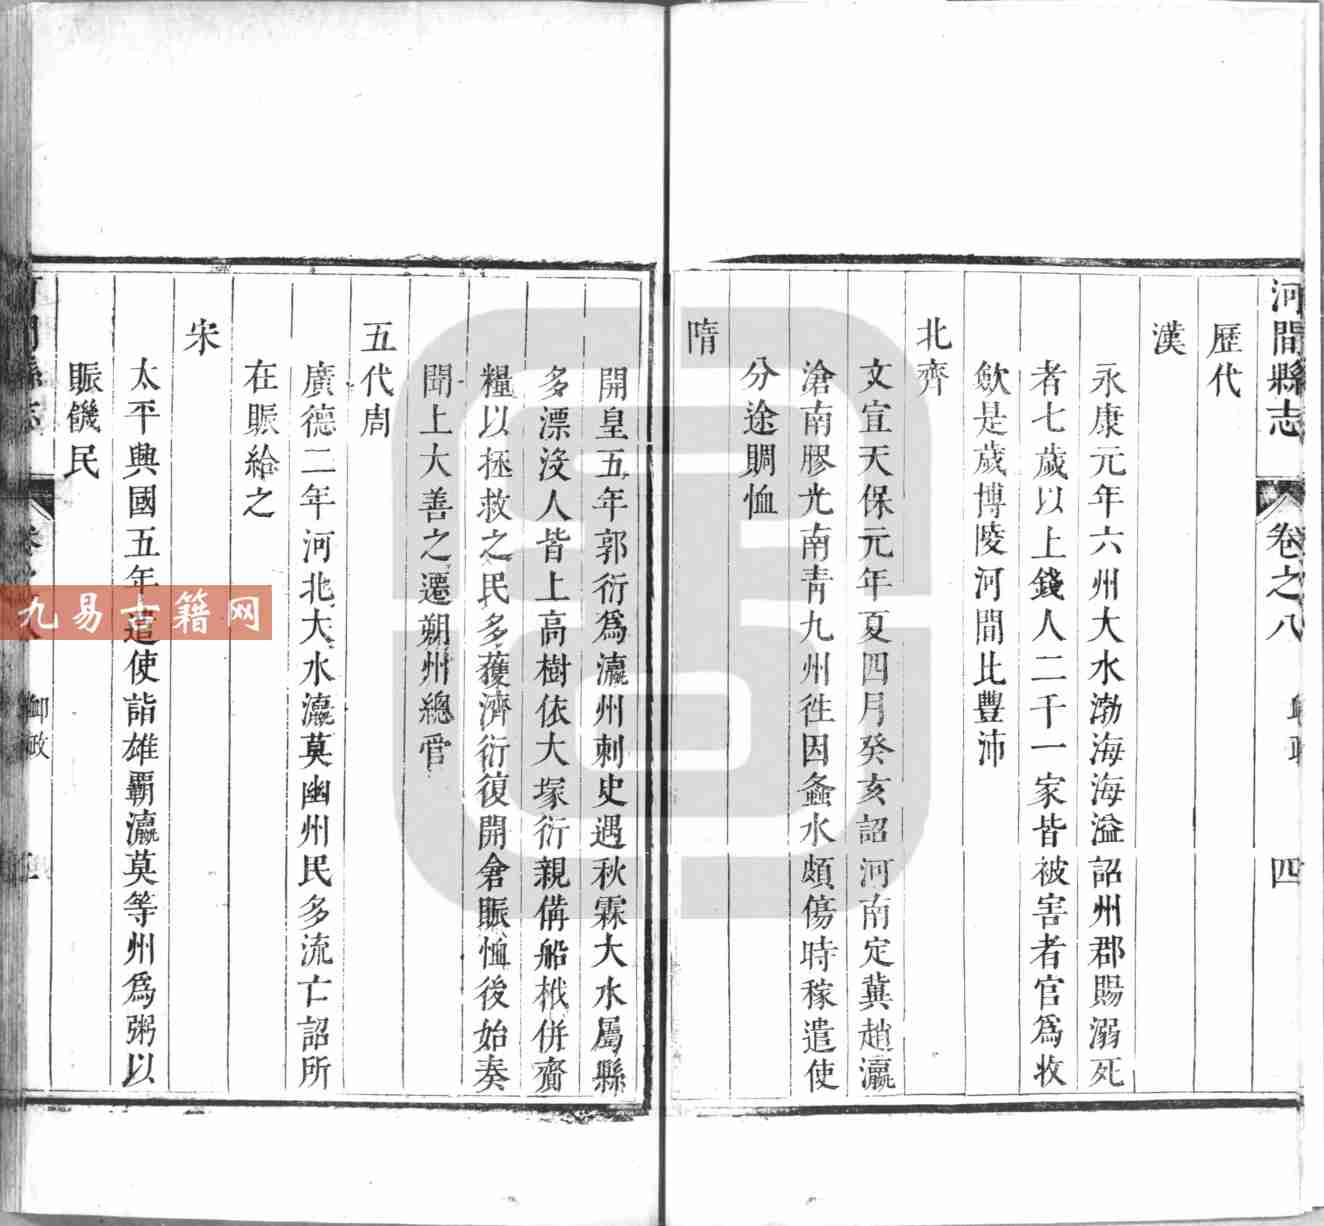 河間縣志
卷之八
四
歷代
漢
永康元年六州大水渤海海溢詔州郡賜溺死
者七歲以上錢人二千一家皆被害者官爲收
歛是歲博陵河間比豐沛
北齊
文宣天保元年夏四月癸亥詔河南定冀趙瀛
滄南膠光南青九州徃因螽水頗傷時稼遣使
分途賙恤
隋
開皇五年郭衍爲瀛州刺史遇秋霖大水屬縣
多漂沒人皆上高樹依大塚衍親備船栰併齎
糧以拯救之民多獲濟衍復開倉賑恤後始奏
聞上大善之遷朔州總管
五代周
廣德二年河北大水瀛莫幽州民多流亡詔所
在賑給之
宋
太平興國五年遣使詣雄覇瀛莫等州爲粥以
賑饑民
縣志
政
九易古籍网